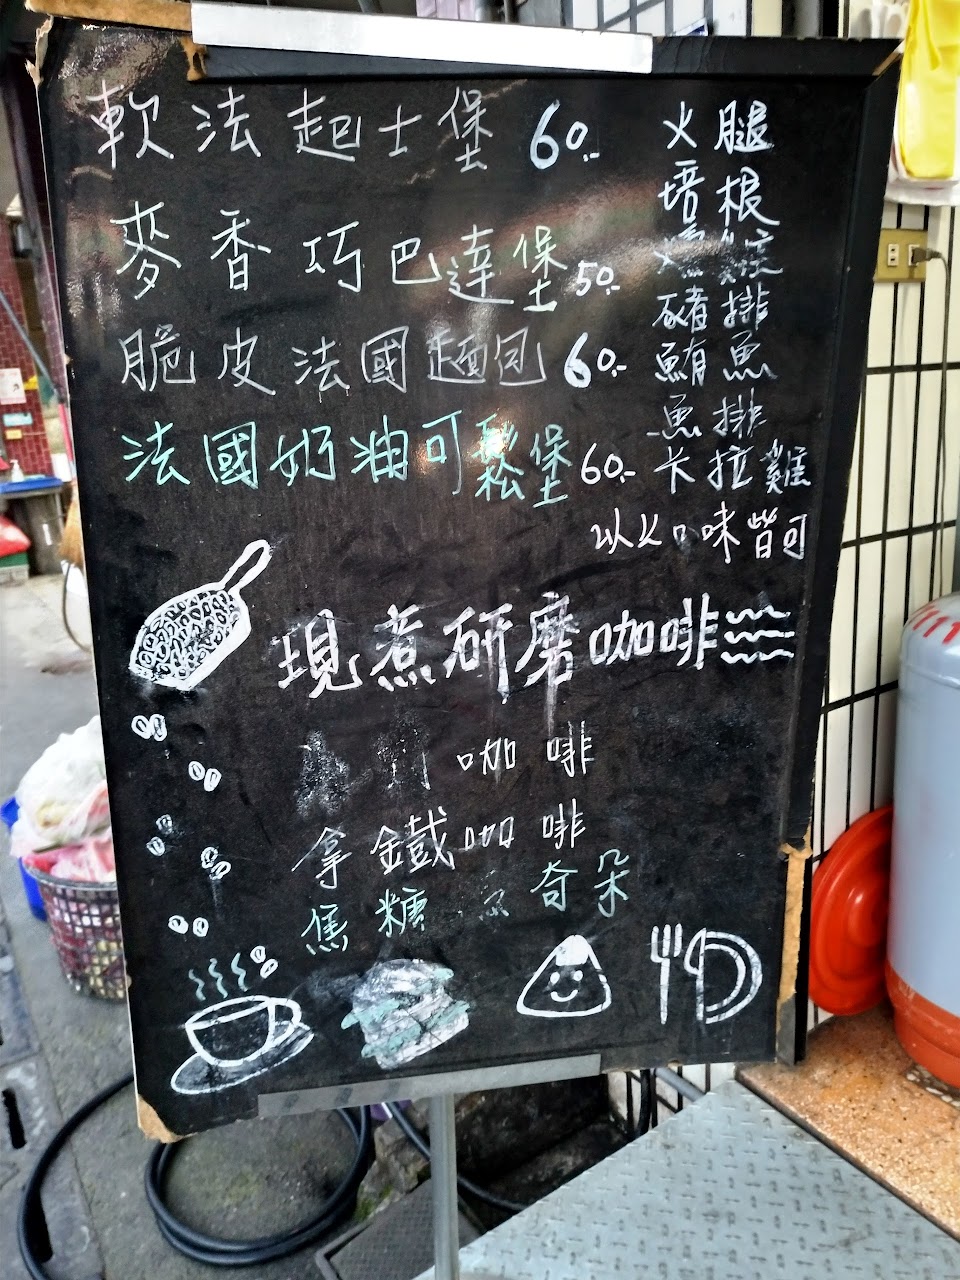 軟法起士堡 60.-
麥香巧巴達堡 50.-
脆皮法國麵包 60.-
法國奶油可鬆堡 60.-
火腿
培根
燻雞
豬排
鮪魚
魚排
卡拉雞
以上口味皆可
現煮研磨咖啡
咖啡
拿鐵咖啡
焦糖 奇朵